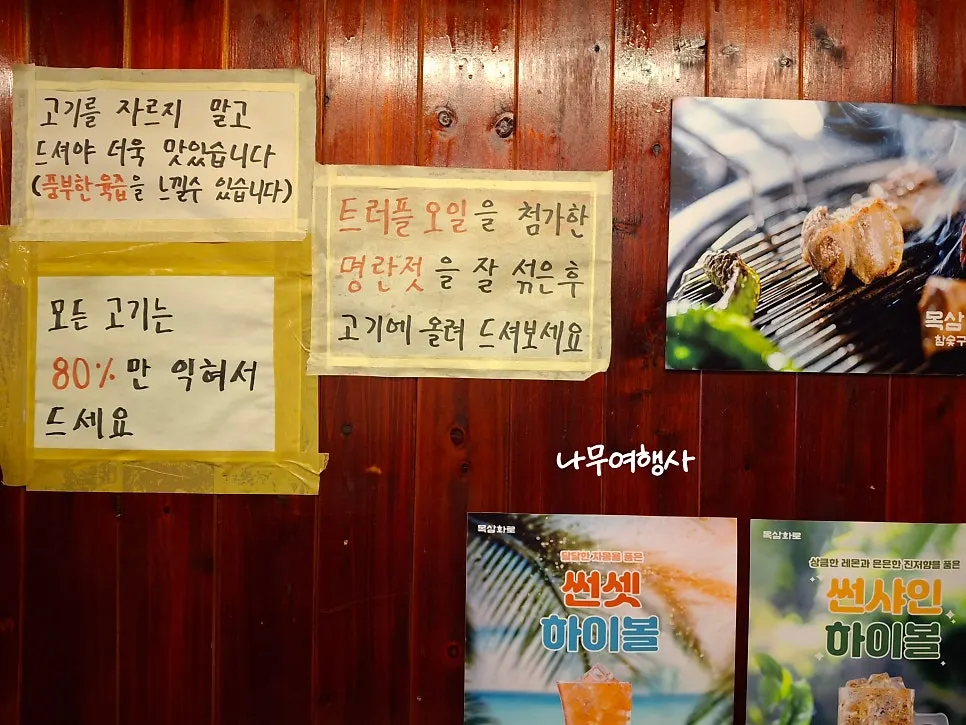 고기를 자르지 말고
드셔야 더욱 맛있습니다
(풍부한 육즙을 느낄수 있습니다)
모든 고기는
80%만 익혀서
드세요
트러플 오일을 첨가한
명란젓을 잘 섞은후
고기에 올려 드셔보세요
목삼
참숯구
나무여행사
목삼화로
달달한 자몽을 품은
썬셋
하이볼
목삼화로
상큼한 레몬과 은은한 진저향을 품은
썬샤인
하이볼